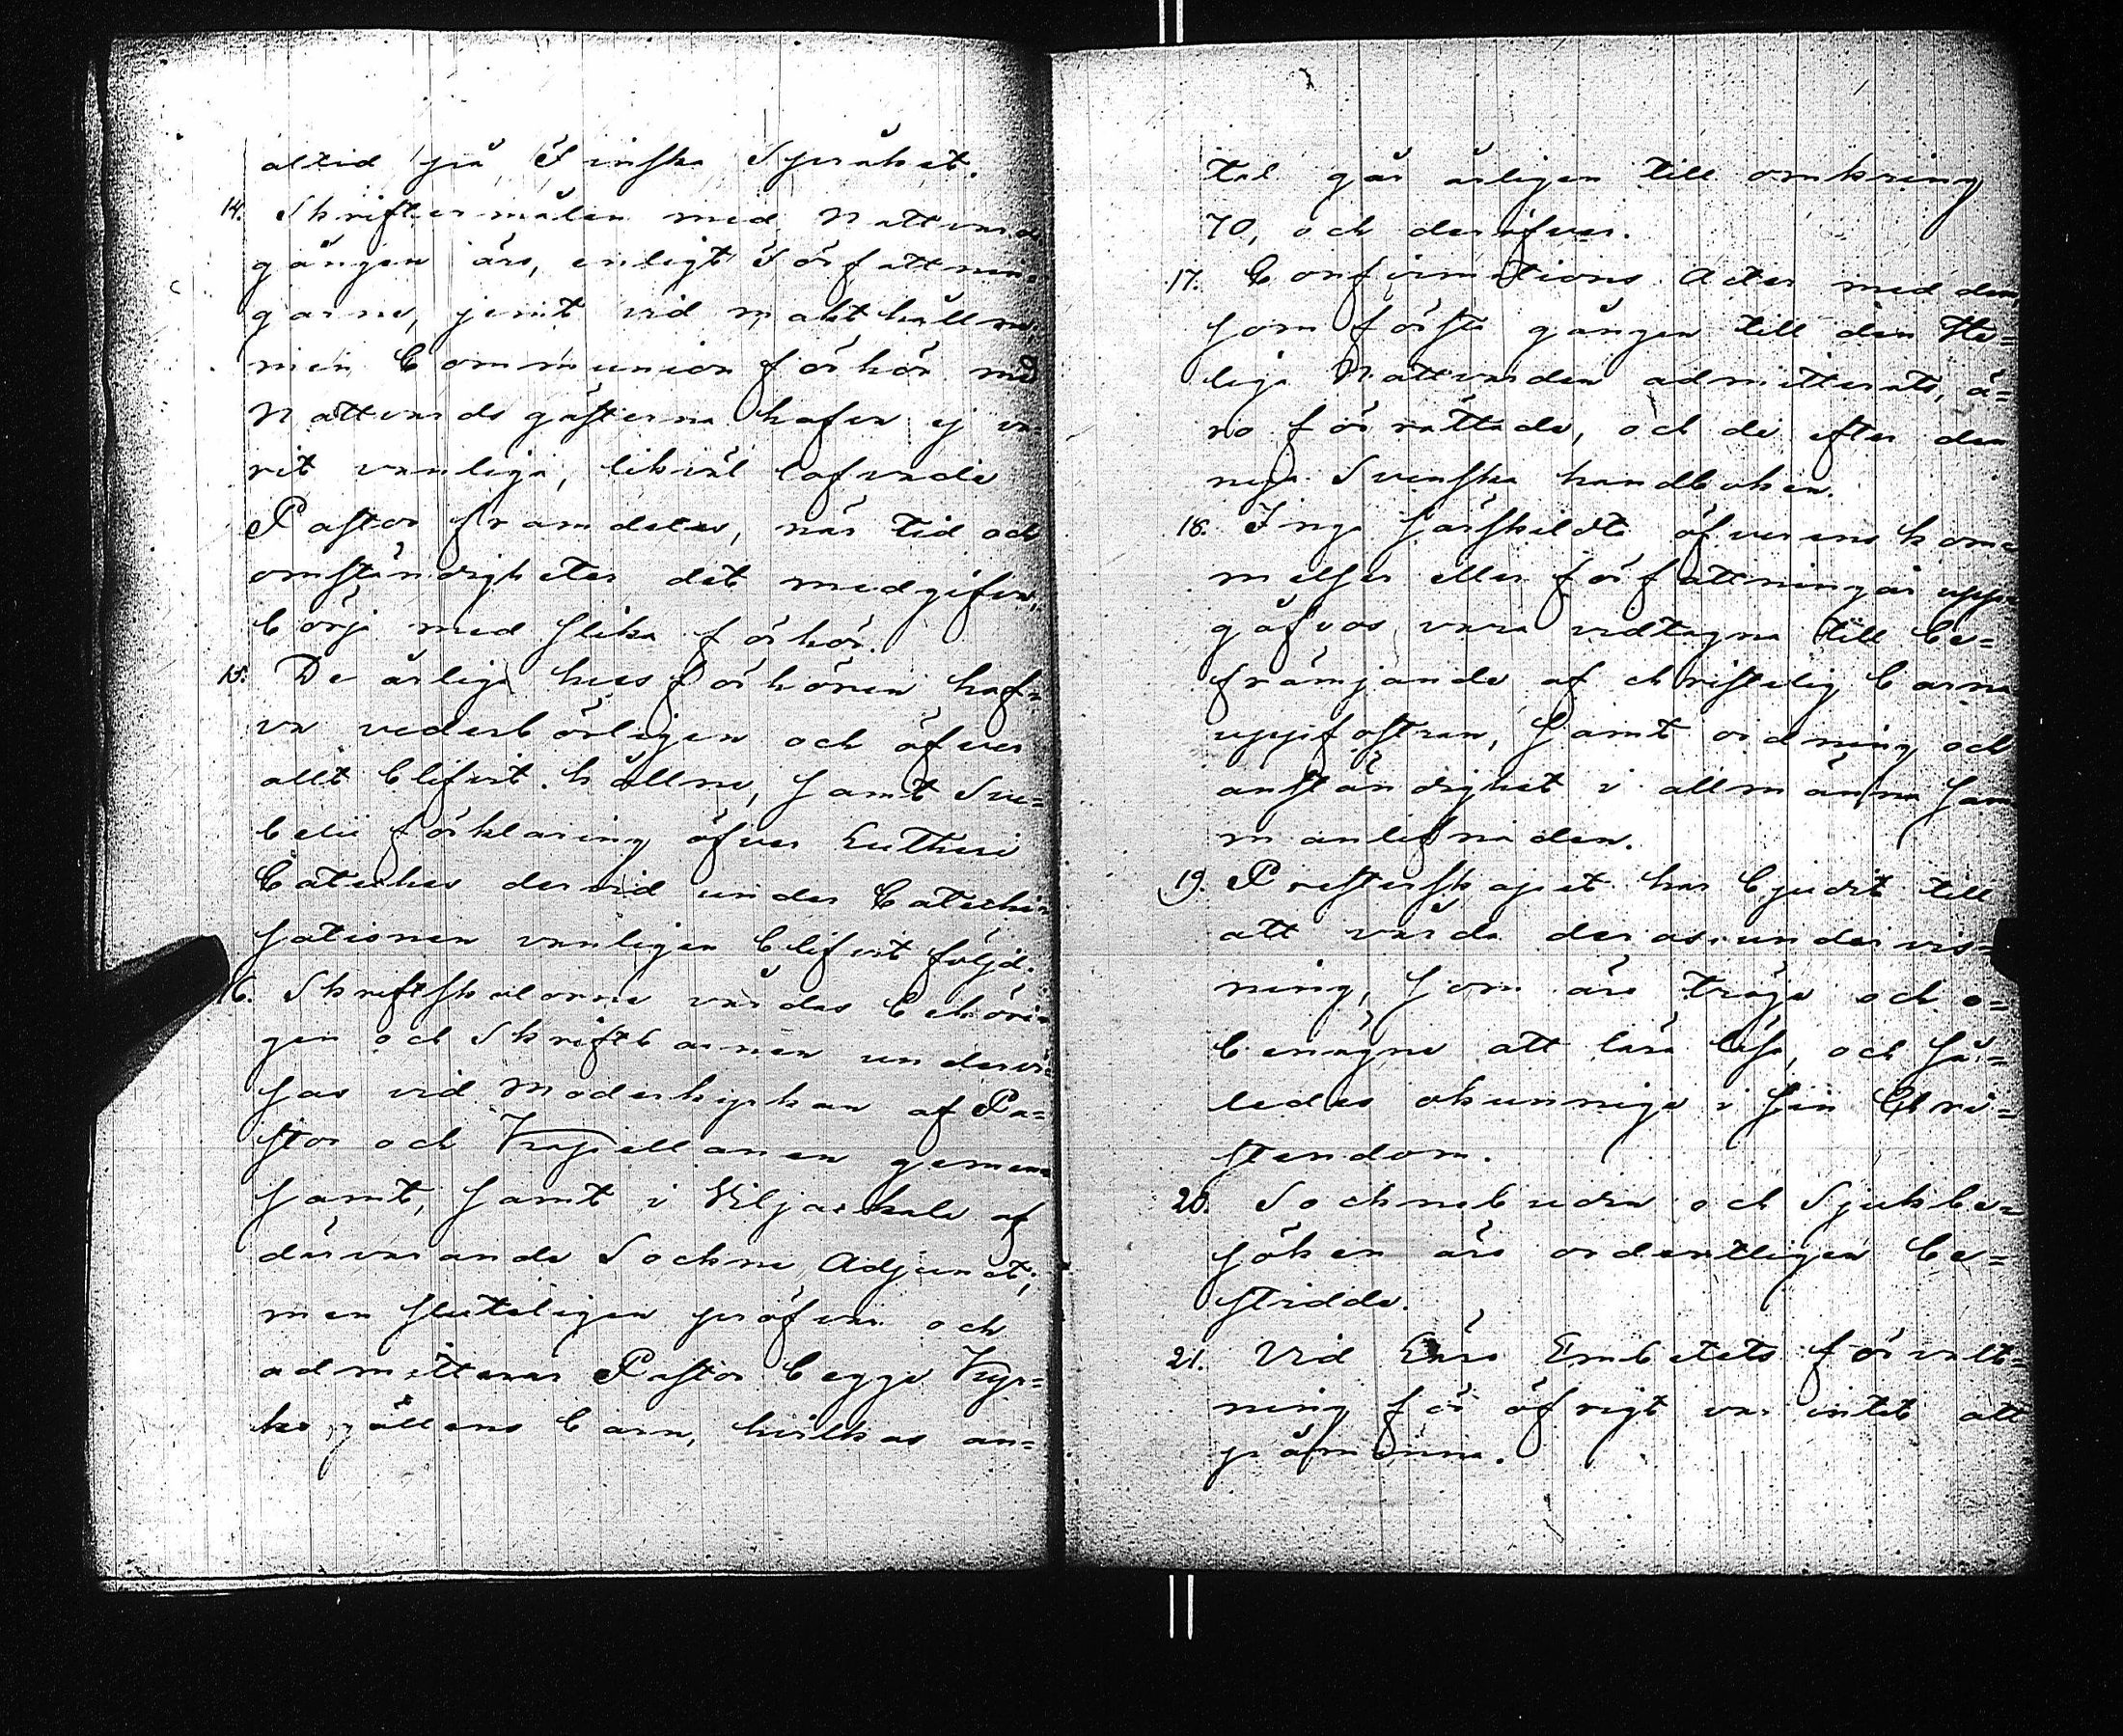 altid på Finska Språket.
14. Skriftermålen med Nattvards
gången äro, enligt Författnin-
garne, jemt vid makt hållne,
men Communion förhör med
Nattvards gästerna hafva ej va-
rit vanliga, likväl lofvade
Pastor framdeles, när tid och
omständigheter det medgifva,
börja med slika förhör.
15. De årliga husförhören haf-
va vederbörligen och öfver
allt blifvit hållne, samt Sve-
belii förklaring öfver Lutheri
Cateches dervid under Catechi-
sationen vanligen blifvit följd.
16. Skriftskolorne vårdas behöri-
gen och Skriftbarnen undervi-
sas vid Moderkyrkan af Pa-
stor och Kapellanen gemen-
samt, samt i Viljackala af
därvarande Sockne Adjunct;
men sluteligen pröfvar och
admitterar Pastor begge Kyr-
ko gällens barn, hvilkas an-
tal går årligen till omkring
70, och deröfver.
17. Confirmations Acter med dem,
som första gången till den He-
liga Nattvarden admitterats, ä-
ro förrättade, och de efter den
nya Svenska handboken.
18. Inga särskildta öfverenskom-
melser eller författningar uppe
gåfvos vara vidtagna till be-
främjande af christelig barna
uppfostran, samt ordning och
anständighet i allmänna sam
manlefnaden.
19. Presterskapet har bjudit till
att vårda deras undervis-
ning, som äro tröga och o-
benägne att lära läsa, och så-
ledes okunniga i sin Chri-
stendom.
20. Socknebuden och Sjukbe-
söken äro ordentligen be-
stridde.
21. Vid Läro Embetets förvalt-
ning för öfrigt var intet att
påminna.